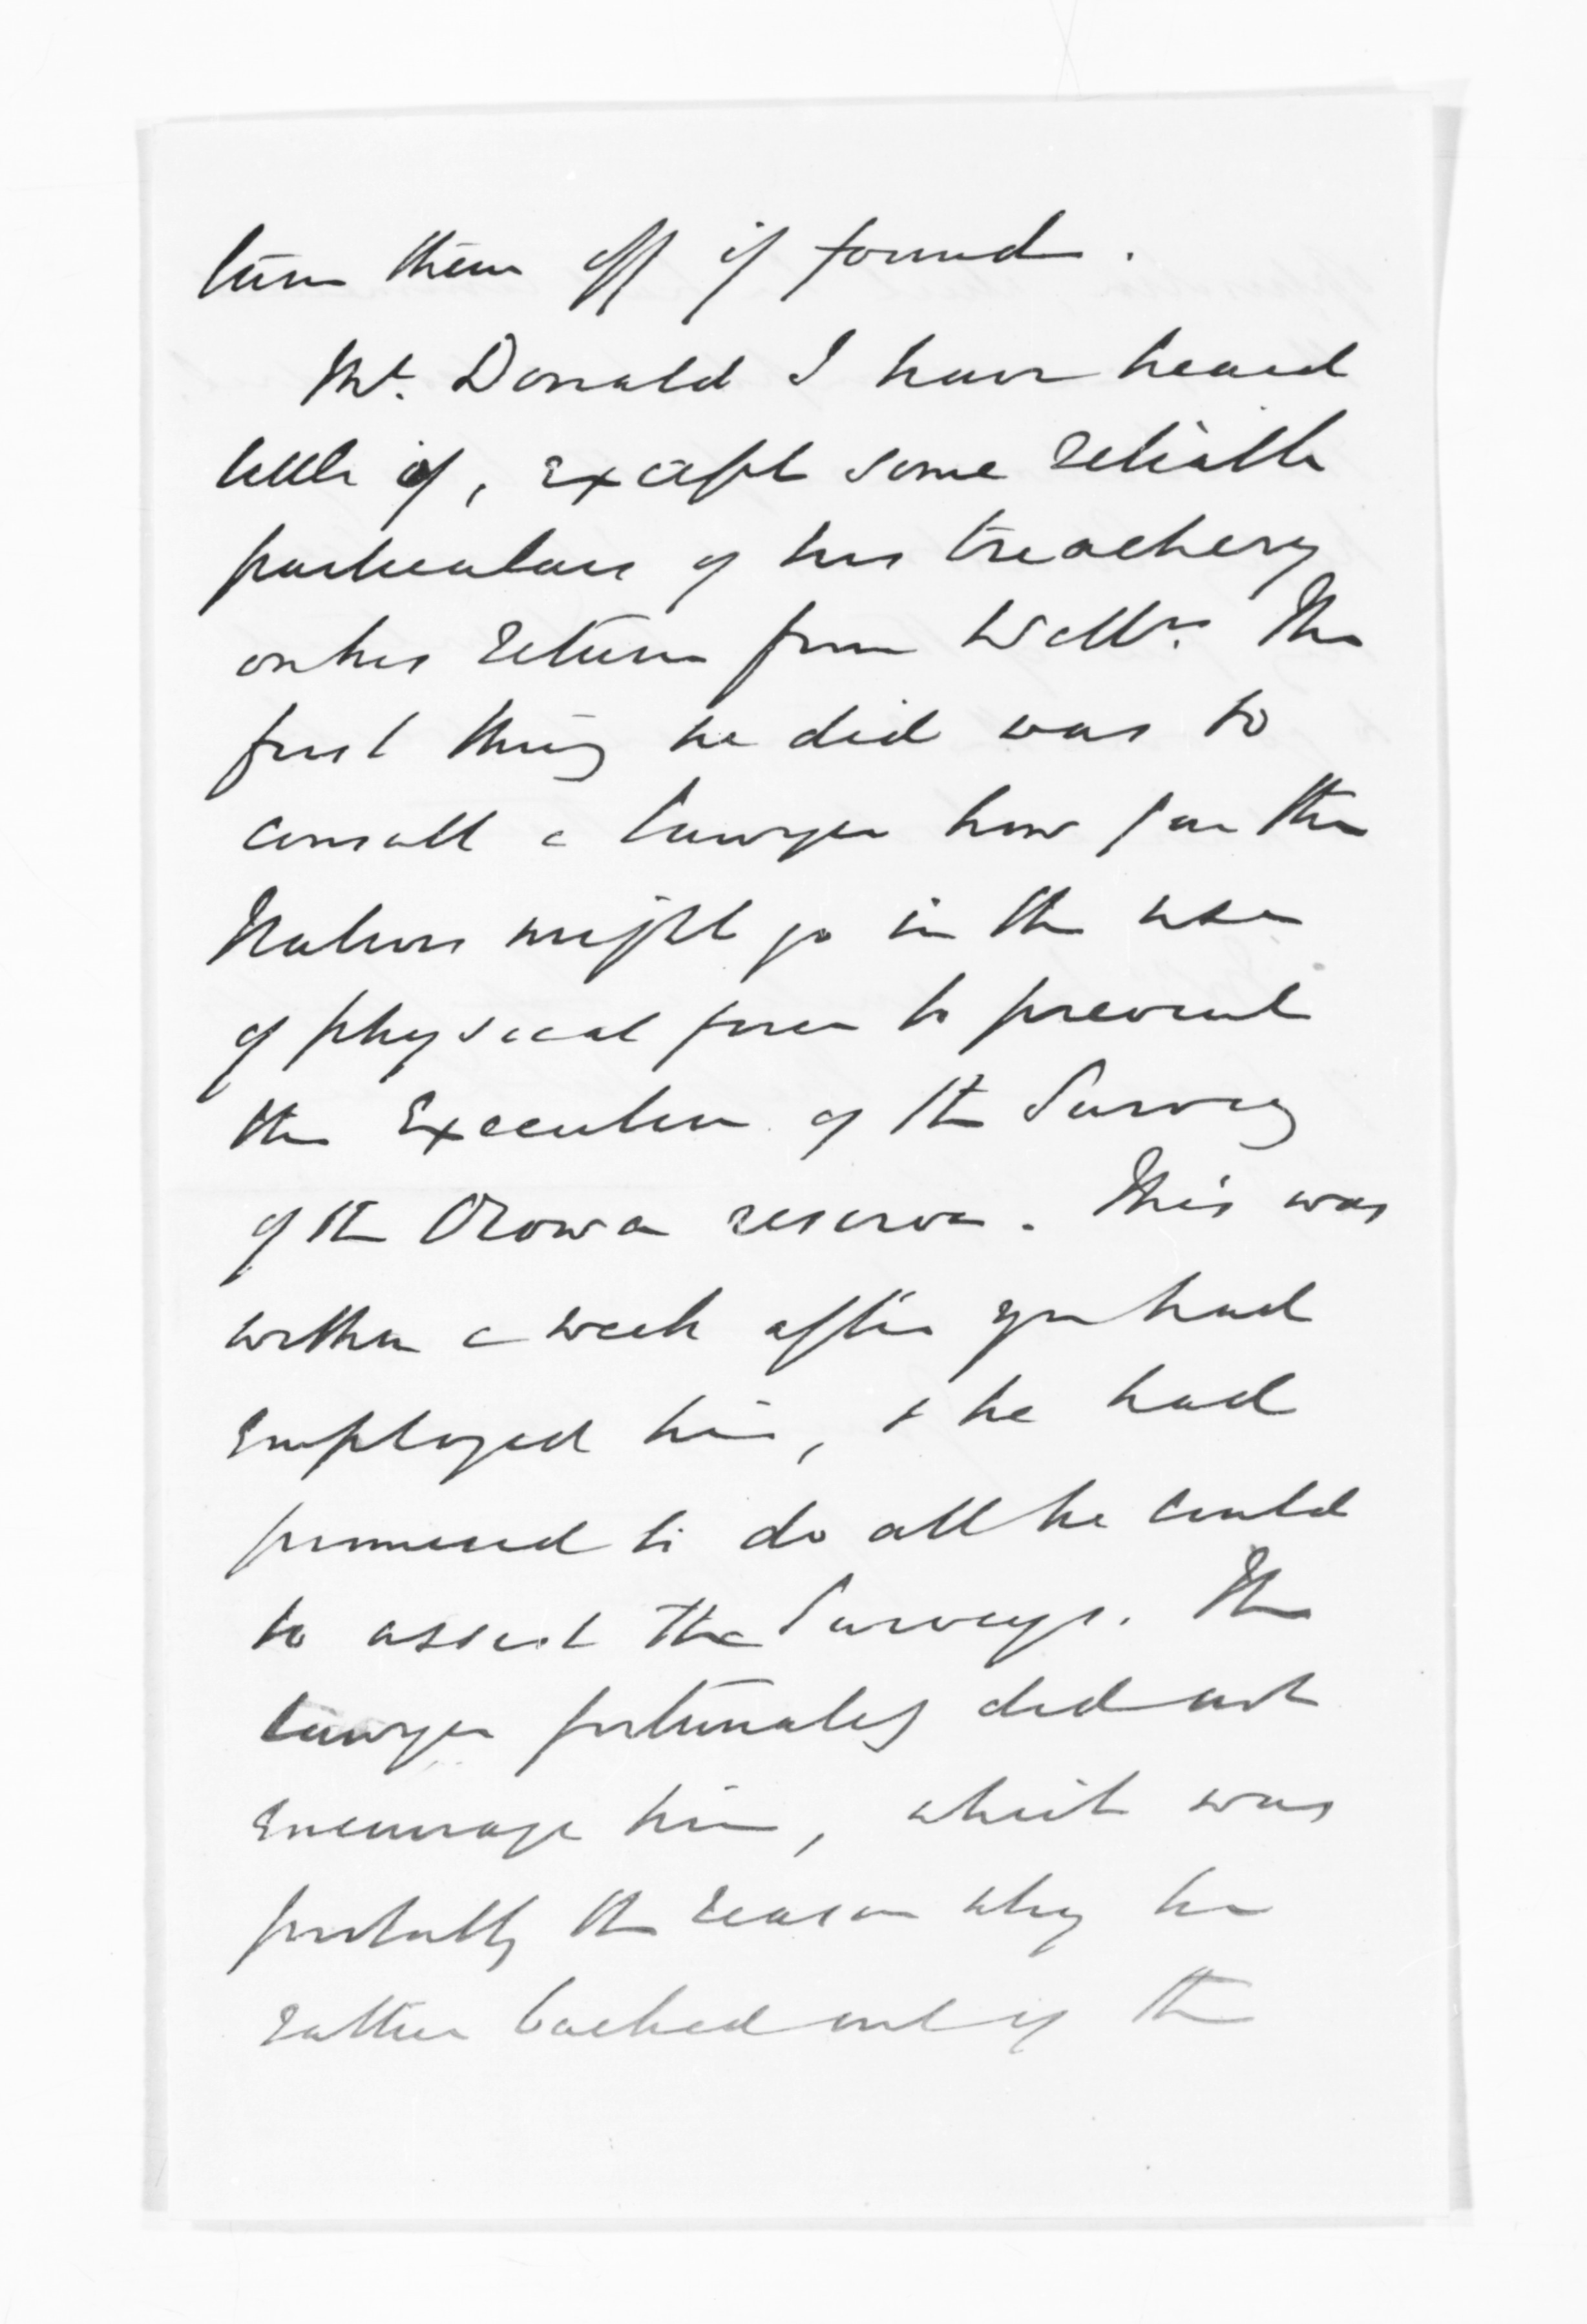 turn them off if found.
McDonald I have heard
little of, except some reliable
particulars of his treachery
on his return from Welln. The
first thing he did was to
consult a lawyer how far the
Natives might go in the use
of physical force to prevent
the Execution of the Survey
of the Orowa reserve. This was
within a week after you had
employed him, & he had
promised to do all he could
to assist the Surveys. The
lawyer fortunately did not
encourage him, which was
probably the reason why he
rather backed out of the